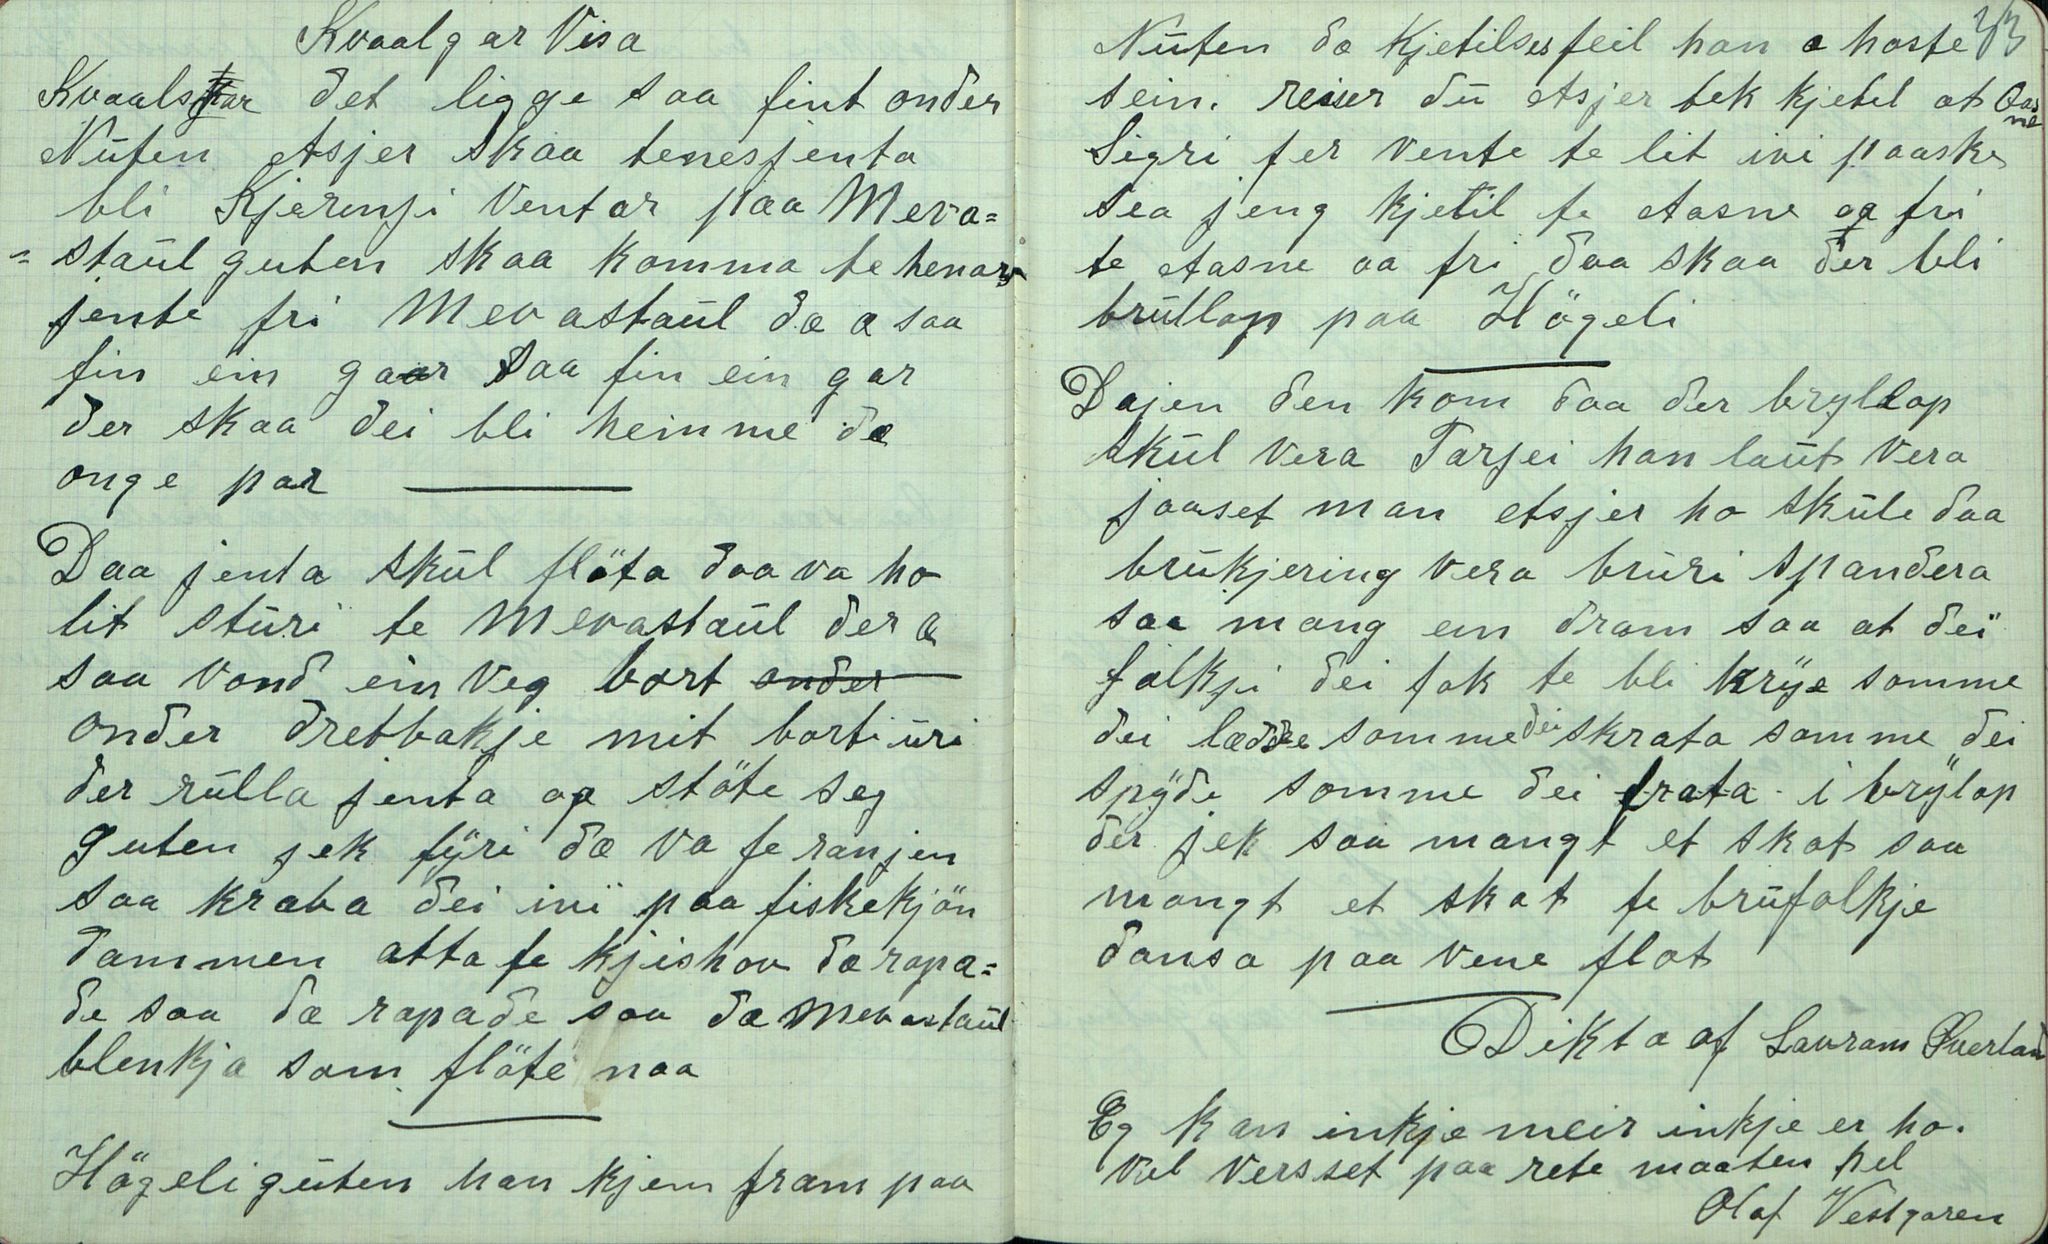 Kvaalgar Visa
Kvaalsgar det ligge saa fint onder
Nuten etsjer skaa tenesjenta
bli Kjerinji Ventar paa Meva=
=staul guten skaa komma te henar
jente fri Mevastaul dæ æ saa
fin ein gaar saa fin ein gar
der skaa dei bli heimme dæ
onge par
Daa jenta skul flöta daa va ho
lit sturi te Mevastaul der æ
saa vond ein veg bort onder
onder dretbakje mit borti uri
der rulla jenta op stöte seg
guten jek fÿri dæ va fe ranjen
saa kraba dei ivi paa fiskekjön
dammen atta fe kjishov dæ ropa=
de saa dæ ropade saa dæ Mevastaul
blenkja som flöte naa
Högeliguten han kjem fram paa
33
Nuten dæ Kjetilses feil han a hoste
sein. reiser du etsjer tek kjetel at Aas
ne
Sigri fer vente te lit ivi paaske
sea jeng kjetil te Aasne aa fri
te Aasne aa fri daa skaa der bli
brullop paa Högeli
Dajen den kom daa der bryllop
skul vera Tarjei han laut vera
jaaset man etsjer ho skule daa
brukjering vera bruri spandera
saa mang ein dram saa at dei
folkji dei fok te bli krÿe somme
dei lædde somme dei skrata somme dei
spÿde somme dei frata i brÿlop
der jek saa mangt et skot saa
mangt et skot fe brufolkje
dansa paa vene flot
Dikta af Lavram Överland
Eg kan inkje meir inkje er ho.
vel versset paa rete maaten hel
Olaf Vestgaren